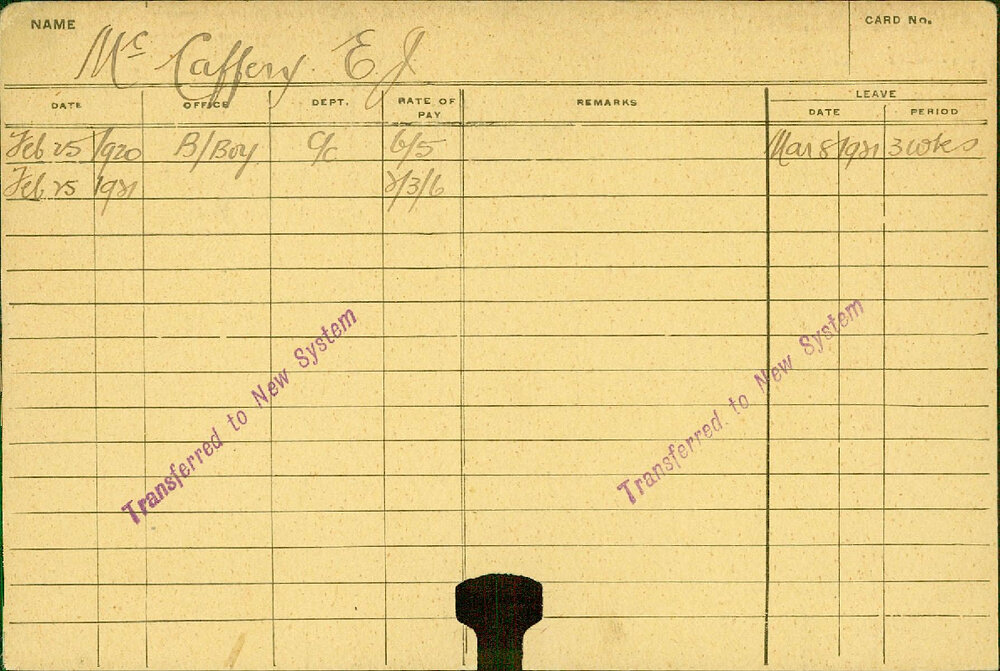 NAME CARD No.
Mc Caffery. E J
DATE OFFICE DEPT. RATE OF PAY REMARKS LEAVE
DATE PERIOD
Feb 25 1920 B/Boy C/C 6/5 Mar 8 1921 3 wks
Feb 25 1921 2/3/6
Transferred to New System
Transferred to New System